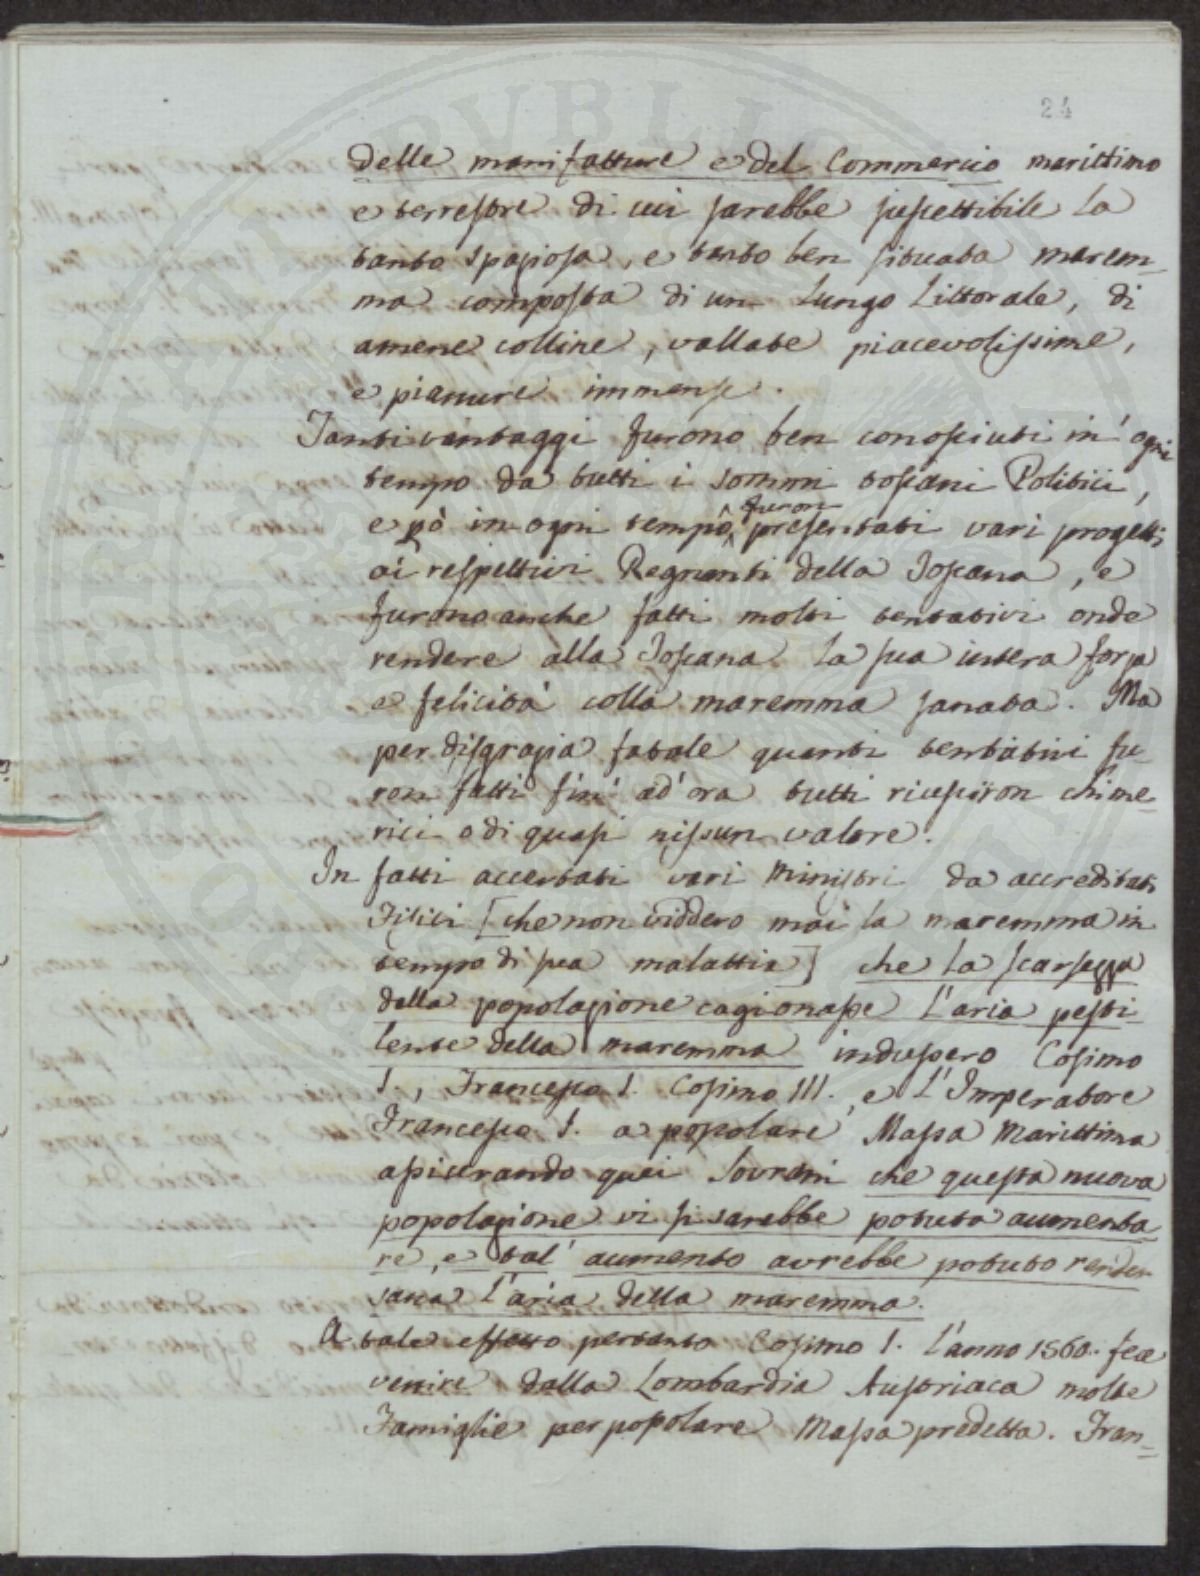 24
delle manifatture e del Commercio marittimo
e terrestre di cui sarebbe suscettibile la
tanto spaziosa, e tanto ben situata marem-
ma composta di un lungo littorale, di
amene colline, vallate piacevolissime,
e pianure immense.
Tanti vantaggi furono ben conosciuti in ogni
tempo da tutti i sommi toscani Politici,
furon
e pò in ogni tempo presentati vari progetti
ai respettivi Regnanti della Toscana, e
furono anche fatti molti tentativi onde
rendere alla Toscana la sua intera forza
e felicità colla maremma sanata. Ma
per disgrazia fatale quanti tentativi fu-
ron fatti fin' ad' ora tutti riusciron chime-
rici o di quasi nissun valore.
In fatti accertati vari Ministri da accreditati
Fisici [che non viddero mai la maremma in
tempo di sua malattia] che la scarsezza
della popolazione cagionasse l'aria pesti-
lente della maremma indussero Cosimo
I., Francesco I. Cosimo III., e l'Imperatore
Francesco I. a popolare Massa Marittima
assicurando quei Sovrani che questa nuova
popolazione vi si sarebbe potuta aumenta
re, e tal' aumento avrebbe potuto render
sana l'aria della maremma.
A tale effetto pertanto Cosimo I. l'anno 1560. fece
venire dalla Lombardia Austriaca molte
Famiglie per popolare Massa predetta. Fran-